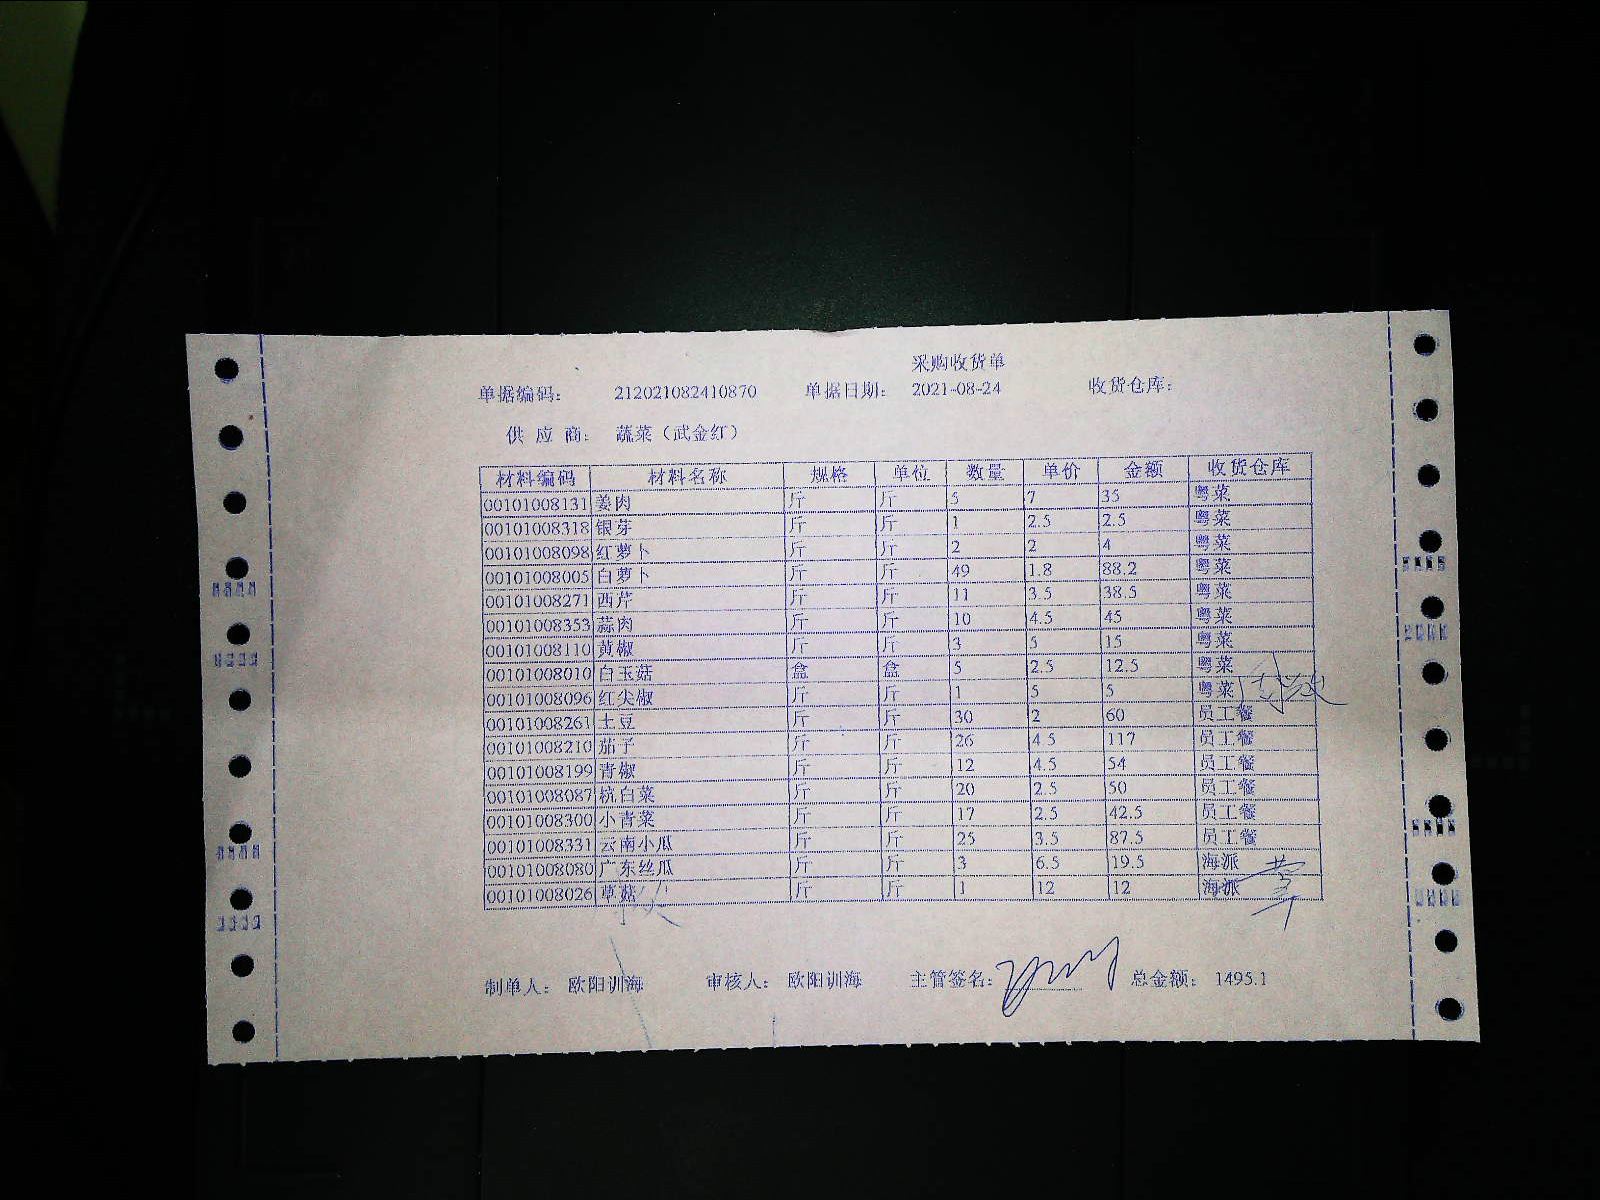 采购收货单
单据编码: 212021082410870 单据日期: 2021-08-24 收货仓库:
供 应 商: 蔬菜（武金红）
材料编码 材料名称 规格 单位 数量 单价 金额 收货仓库
00101008131 姜肉 斤 斤 5 7 35 粤菜
00101008318 银芽 斤 斤 1 2.5 2.5 粤菜
00101008098 红萝卜 斤 斤 2 2 4 粤菜
00101008005 白萝卜 斤 斤 49 1.8 88.2 粤菜
00101008271 西芹 斤 斤 11 3.5 38.5 粤菜
00101008353 蒜肉 斤 斤 10 4.5 45 粤菜
00101008110 黄椒 斤 斤 3 5 15 粤菜
00101008010 白玉菇 盒 盒 5 2.5 12.5 粤菜
00101008096 红尖椒 斤 斤 1 5 5 粤菜
00101008261 土豆 斤 斤 30 2 60 员工餐
00101008210 茄子 斤 斤 26 4.5 117 员工餐
00101008199 青椒 斤 斤 12 4.5 54 员工餐
00101008087 杭白菜 斤 斤 20 2.5 50 员工餐
00101008300 小青菜 斤 斤 17 2.5 42.5 员工餐
00101008331 云南小瓜 斤 斤 25 3.5 87.5 员工餐
00101008080 广东丝瓜 斤 斤 3 6.5 19.5 海派
00101008026 草菇 斤 斤 1 12 12 海派
制单人: 欧阳训海 审核人: 欧阳训海 主管签名: 总金额: 1495.1